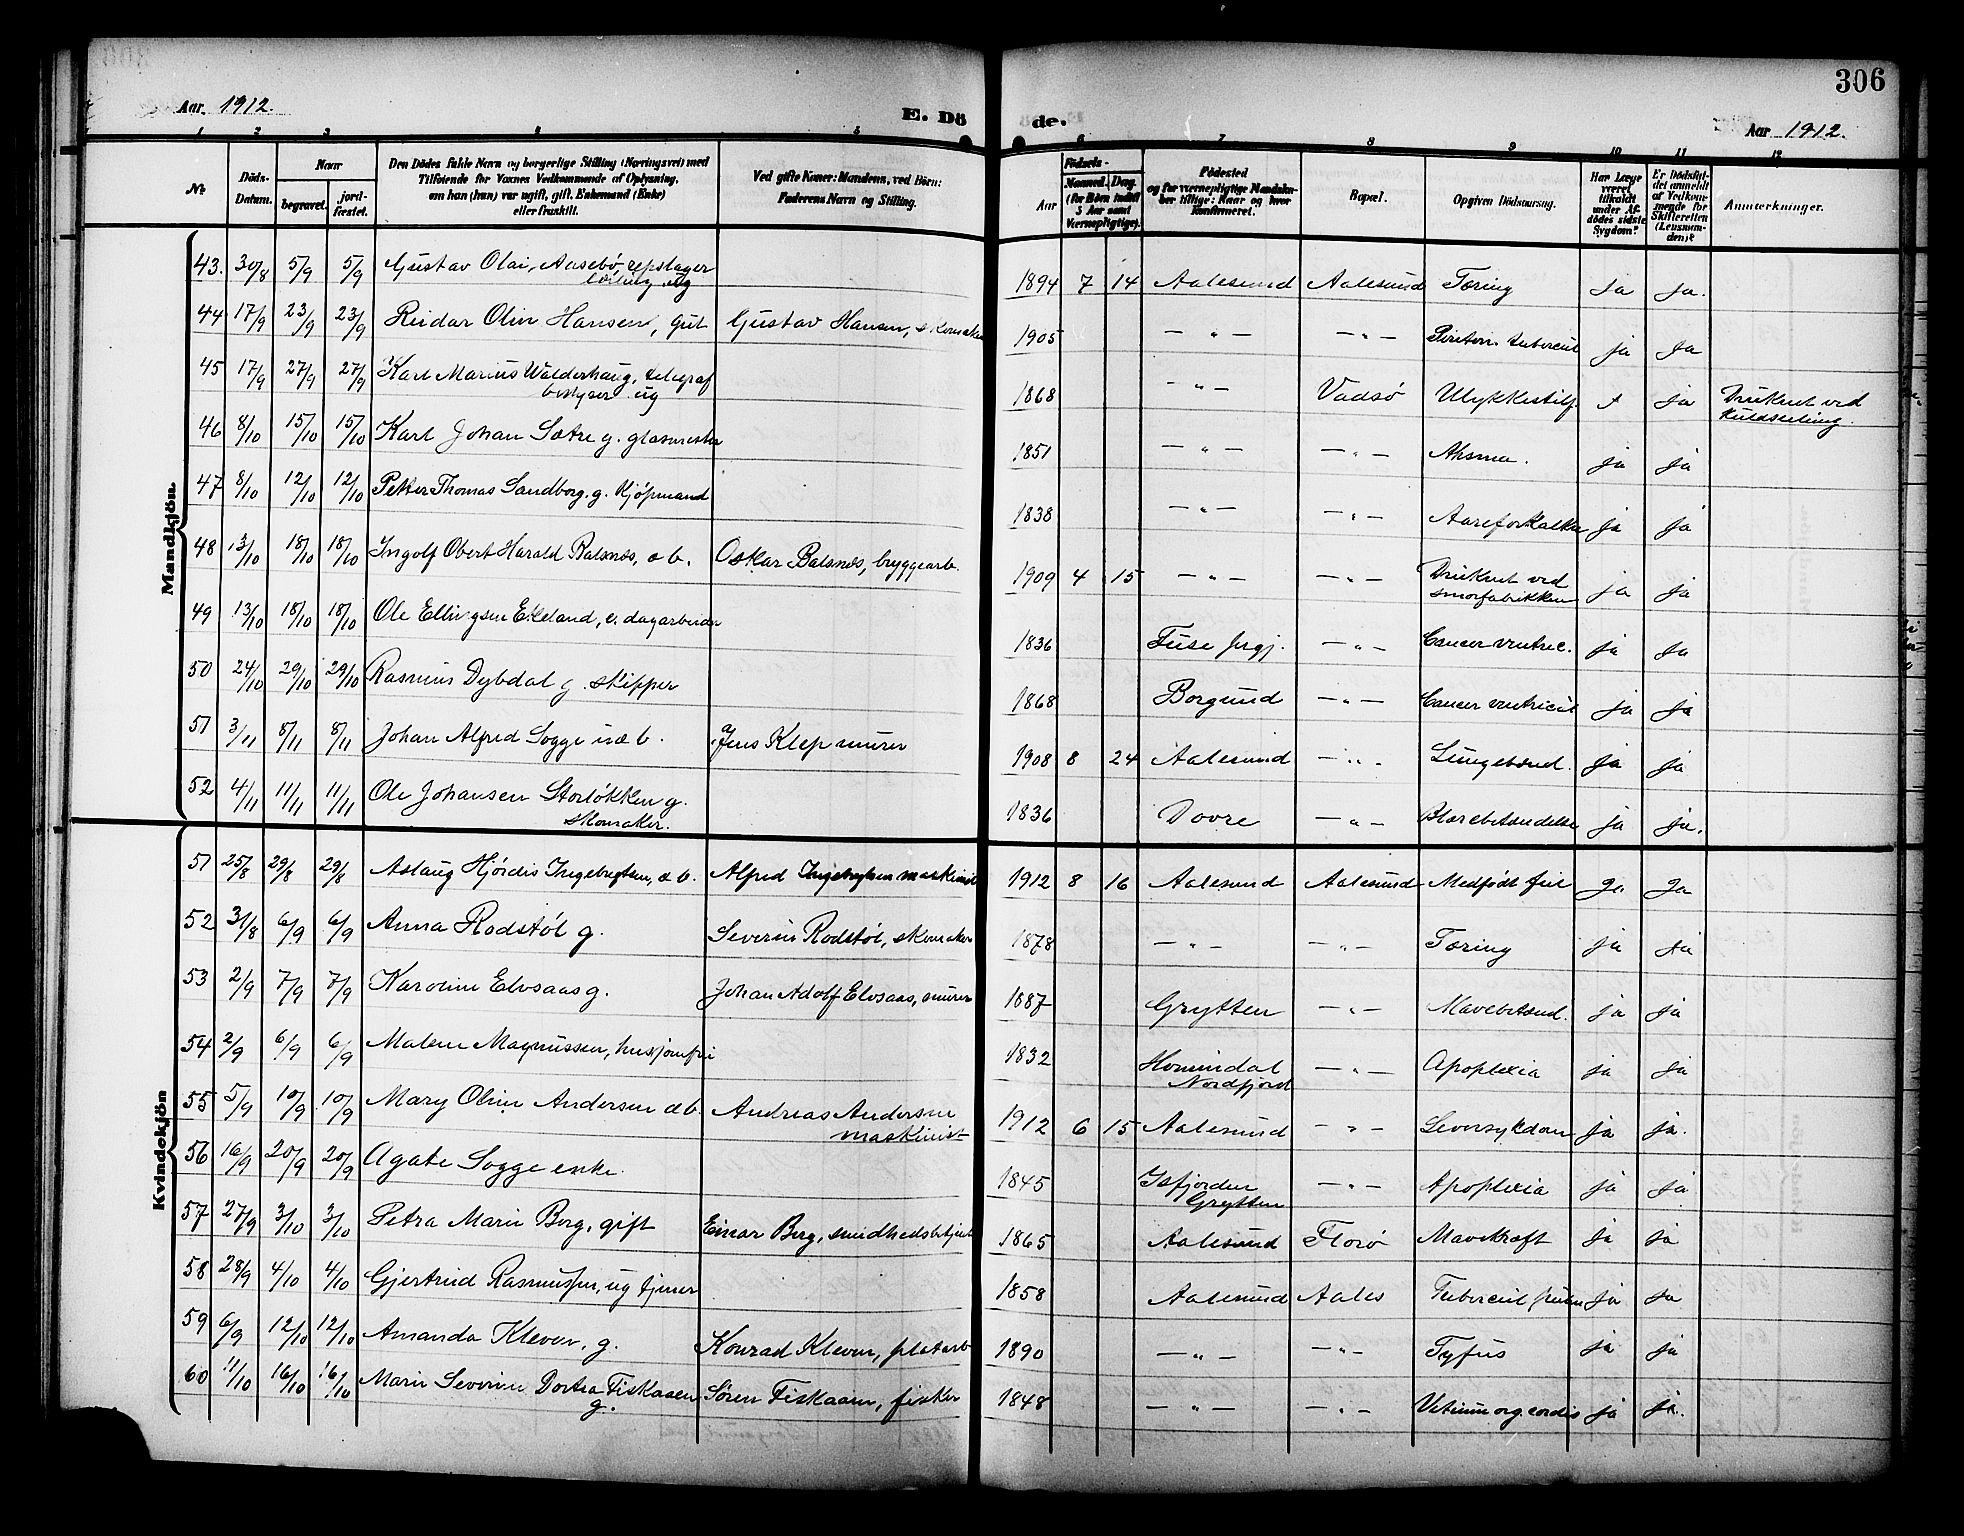 306
Aar 1912.
E. Dö
de.
Aar 1912.
1 2 3 4 5
6 7 8 9 10 11 12
No
Döds-
Datum.
Naar
begravet.
jord-
fæstet.
Den Dödes fulde Navn og borgerlige Stilling (Næringsvei) med
Tilføiende for Voxnes Vedkommende af Oplysning,
om han (hun) var ugift, gift, Enkemand (Enke)
eller fraskilt.
Ved gifte Koner: Mandens, ved Börn:
Faderens Navn og Stilling.
Födsels-
Aar
Maaned. Dag.
(for Börn indtil
5 Aar samt
Værnepligtige).
Födested
og for værnepligtige Mandskaber
tillige: Naar og hvor
konfirmeret.
Bopæl.
Opgiven Dödsaarsag.
Har Læge
været
tilkaldt
under Afdödes
sidste
Sygdom?
Er Dödsfaldet
anmeldt
af Vedkommende
for
Skifteretten
(Lensmanden)?
Anmærkninger.
Mandkjön.
43. 30/8 5/9 5/9 Gustav Olai Aasebö, repslager
lærling, ug 1894 7 14 Aalesund Aalesund Tæring Ja Ja.
44 17/9 23/9 23/9 Reidar Olin Hansen, gut Gustav Hansen, skomaker 1905 — " — — " — Periton. tubercul ja Ja
45 17/9 27/9 27/9 Karl Marius Walderhaug, telegraf
bestyrer ug 1868 — " — Vadsö Ulykkestilf. ja Druknet ved
kuldseiling.
46 8/10 15/10 15/10 Karl Johan Sætre g. glasmester 1851 — " — — " — Ahsma. ja ja
47 8/10 12/10 12/10 Petter Thomas Sandborg. g. Kjöpmand 1838 — " — — " — Aareforkalkn ja ja
48 13/10 18/10 18/10 Ingolf Obert Harald Balsnes, æ b. Oskar Balsnes, bryggearb. 1909 4 15 — " — — " — Druknet ved
smörfabrikken ja ja
49 13/10 18/10 18/10 Ole Ellingsen Eikeland, e. dagarbeider 1836 Fuse prgj. — " — Cancer ventric. ja ja
50 24/10 29/10 29/10 Rasmus Dybdal g. skipper 1868 Borgund — " — Cancer ventricul ja ja
51 3/11 8/11 8/11 Johan Alfred Sogge uæ b. Jens Klep murer 1908 8 24 Aalesund — " — Lungebetænd. ja ja
52 4/11 11/11 11/11 Ole Johansen Storlökken g.
skomaker. 1836 Dovre — " — Blærebetændelse ja ja.
Kvindekjön
51 25/8 29/8 29/8 Aslaug Hjördis Ingebregtsen, æ b. Alfred Ingebregtsen maskinist 1912 8 16 Aalesund Aalesund Medfödt feil Ja Ja
52 31/8 6/9 6/9 Anna Rodstöl g. Severin Rodstöl, skomaker 1878 — " — — " — Tæring ja ja
53 2/9 7/9 7/9 Karoline Elvsaas g. Johan Adolf Elvsaas, murer 1887 Grytten — " — Mavebetænd. ja ja
54 2/9 6/9 6/9 Malene Magnussen, husjomfru 1832 Hornindal
Nordfjord — " — Apoplexia ja ja
55 5/9 10/9 10/9 Mary Olvin Andersen æb. Andreas Andersen
maskinist 1912 6 15 Aalesund — " — Leversykdom ja ja.
56 16/9 20/9 20/9 Agate Sogge enke. 1845 Isfjorden
Grytten — " — Apoplexia ja ja
57 27/9 3/10 3/10 Petra Marie Berg, gift Einar Berg, sundhedsbetjent 1865 Aalesund Florö Mavekræft ja ja
58 28/9 4/10 4/10 Gjertrud Rasmussen, ug tjener 1858 Aalesund Aales Tubercul pulm ja ja
59 6/9 12/10 12/10 Amanda Kleven, g. Konrad Kleven, platarb 1890 — " — — " — Tyfus ja ja
60 11/10 16/10 16/10 Marie Severine Dortea Fiskaaen
g. Sören Fiskaaen, fisker 1848 — " — — " — Vitium org. cordis ja ja.